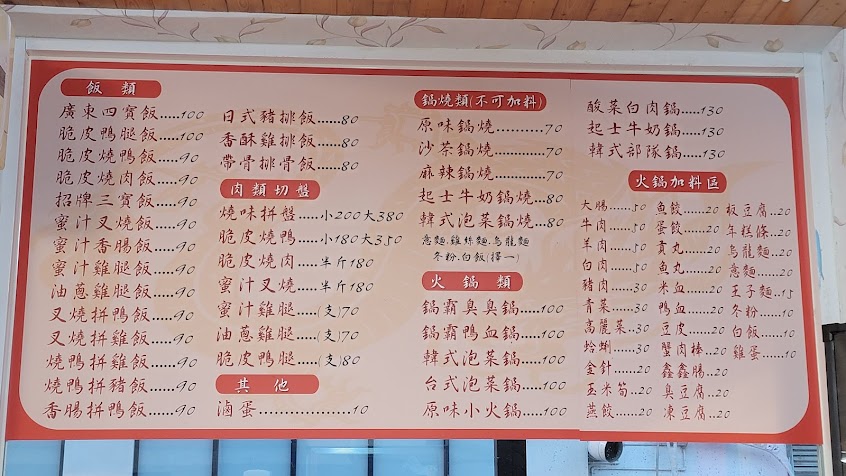 飯類
廣東四寶飯.....100
脆皮鴨腿飯.....100
脆皮燒鴨飯.....90
脆皮燒肉飯.....90
招牌三寶飯.....90
蜜汁叉燒飯.....90
蜜汁香腸飯.....90
蜜汁雞腿飯.....90
油蔥雞腿飯.....90
叉燒拼鴨飯.....90
叉燒拼雞飯.....90
燒鴨拼雞飯.....90
燒鴨拼豬飯.....90
香腸拼鴨飯.....90
日式豬排飯.....80
香酥雞排飯.....80
帶骨排骨飯.....80
肉類切盤
燒味拼盤.....小200大380
脆皮燒鴨.....小180大350
脆皮燒肉.....半斤180
蜜汁叉燒.....半斤180
蜜汁雞腿.....(支)70
油蔥雞腿.....(支)70
脆皮鴨腿.....(支)80
其他
滷蛋...................10
鍋燒類(不可加料)
原味鍋燒..........70
沙茶鍋燒..........70
麻辣鍋燒..........70
起士牛奶鍋燒...80
韓式泡菜鍋燒...80
意麵.雞絲麵.烏龍麵
冬粉.白飯(擇一)
火鍋類
鍋霸臭臭鍋.....100
鍋霸鴨血鍋.....100
韓式泡菜鍋.....100
台式泡菜鍋.....100
原味小火鍋.....100
酸菜白肉鍋....130
起士牛奶鍋....130
韓式部隊鍋....130
火鍋加料區
大腸.....50
牛肉.....50
羊肉.....50
白肉.....50
豬肉.....30
青菜.....30
高麗菜...30
蛤蜊.....30
金針.....20
玉米筍..20
燕餃.....20
魚餃.....20
蛋餃.....20
貢丸.....20
魚丸.....20
米血.....20
鴨血.....20
豆皮.....20
蟹肉棒..20
鑫鑫腸..20
臭豆腐..20
凍豆腐..20
板豆腐..20
年糕條..20
烏龍麵..20
意麵.....20
王子麵..15
冬粉.....10
白飯.....10
雞蛋.....10